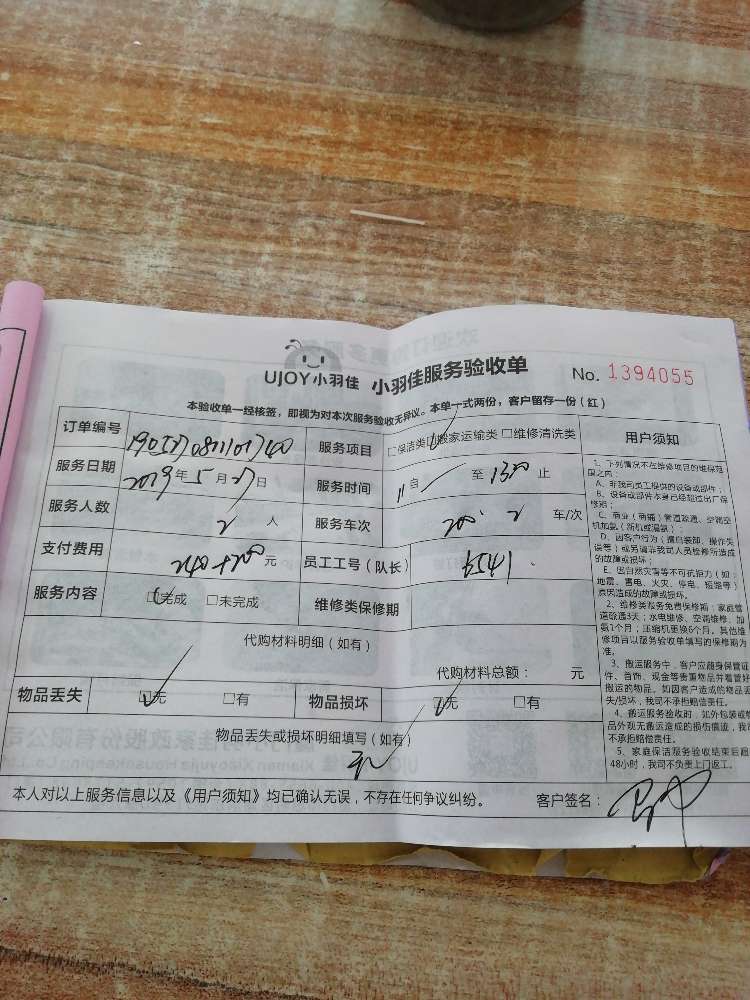 UJOY小羽佳 小羽佳服务验收单 No. 1394055
本验收单一经核签，即视为对本次服务验收无异议。本单一式两份，客户留存一份（红）
订单编号 服务项目 □保洁类 □搬家运输类 □维修清洗类
服务日期 2019年5月27日 服务时间 11自 至1300止
服务人数 2人 服务车次 2 车/次
支付费用 240+200元 员工工号（队长）
服务内容 □完成 □未完成 维修类保修期
代购材料明细（如有）
代购材料总额： 元
物品丢失 □无 □有 物品损坏 □无 □有
物品丢失或损坏明细填写（如有）
无
本人对以上服务信息以及《用户须知》均已确认无误，不存在任何争议纠纷。 客户签名：
用户须知
1、下列情况不在维修项目的维保范
围之内：
A、非我司员工提供的设备或部件；
B、设备或部件本身已经超过出厂保
修期；
C、商业（商铺）管道疏通、空调空
机加氨（新机或漏氨）；
D、因客户行为（擅自装卸、操作失
误等）或另请非我司人员检修所造成
的故障或损坏；
E、因自然灾害等不可抗拒力（如：
地震、雷电、火灾、停电、短路等）
原因造成的故障或损坏。
2、维修类服务免费保修期：家庭管
道疏通3天；水电维修、空调维修、加
氨1个月；压缩机更换6个月。其他维
修项目以服务验收单填写的保修期为
准。
3、搬运服务中，客户应随身保管证
件、首饰、现金等贵重物品并看管好
搬运的物品。如因客户造成的物品丢
失/损坏，我司不承担赔偿责任。
4、搬运服务验收时，如外包装或物
品外观无搬运造成的损伤痕迹，我司
不承担赔偿责任。
5、家庭保洁服务验收结束后超
48小时，我司不负责上门返工。